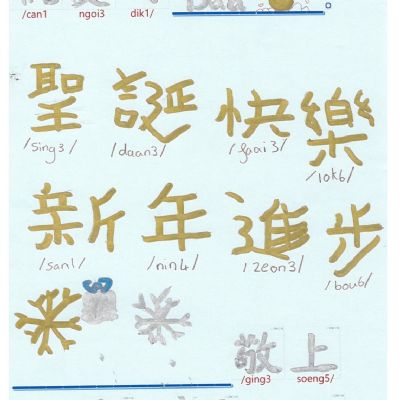 /can1 ngoi3 dik1/
聖誕快樂
/sing3/ /daan3/ /faai3/ /lok6/
新年進步
/san1/ /nin4/ /zeon3/ /bou6/
敬上
/ging3 soeng5/